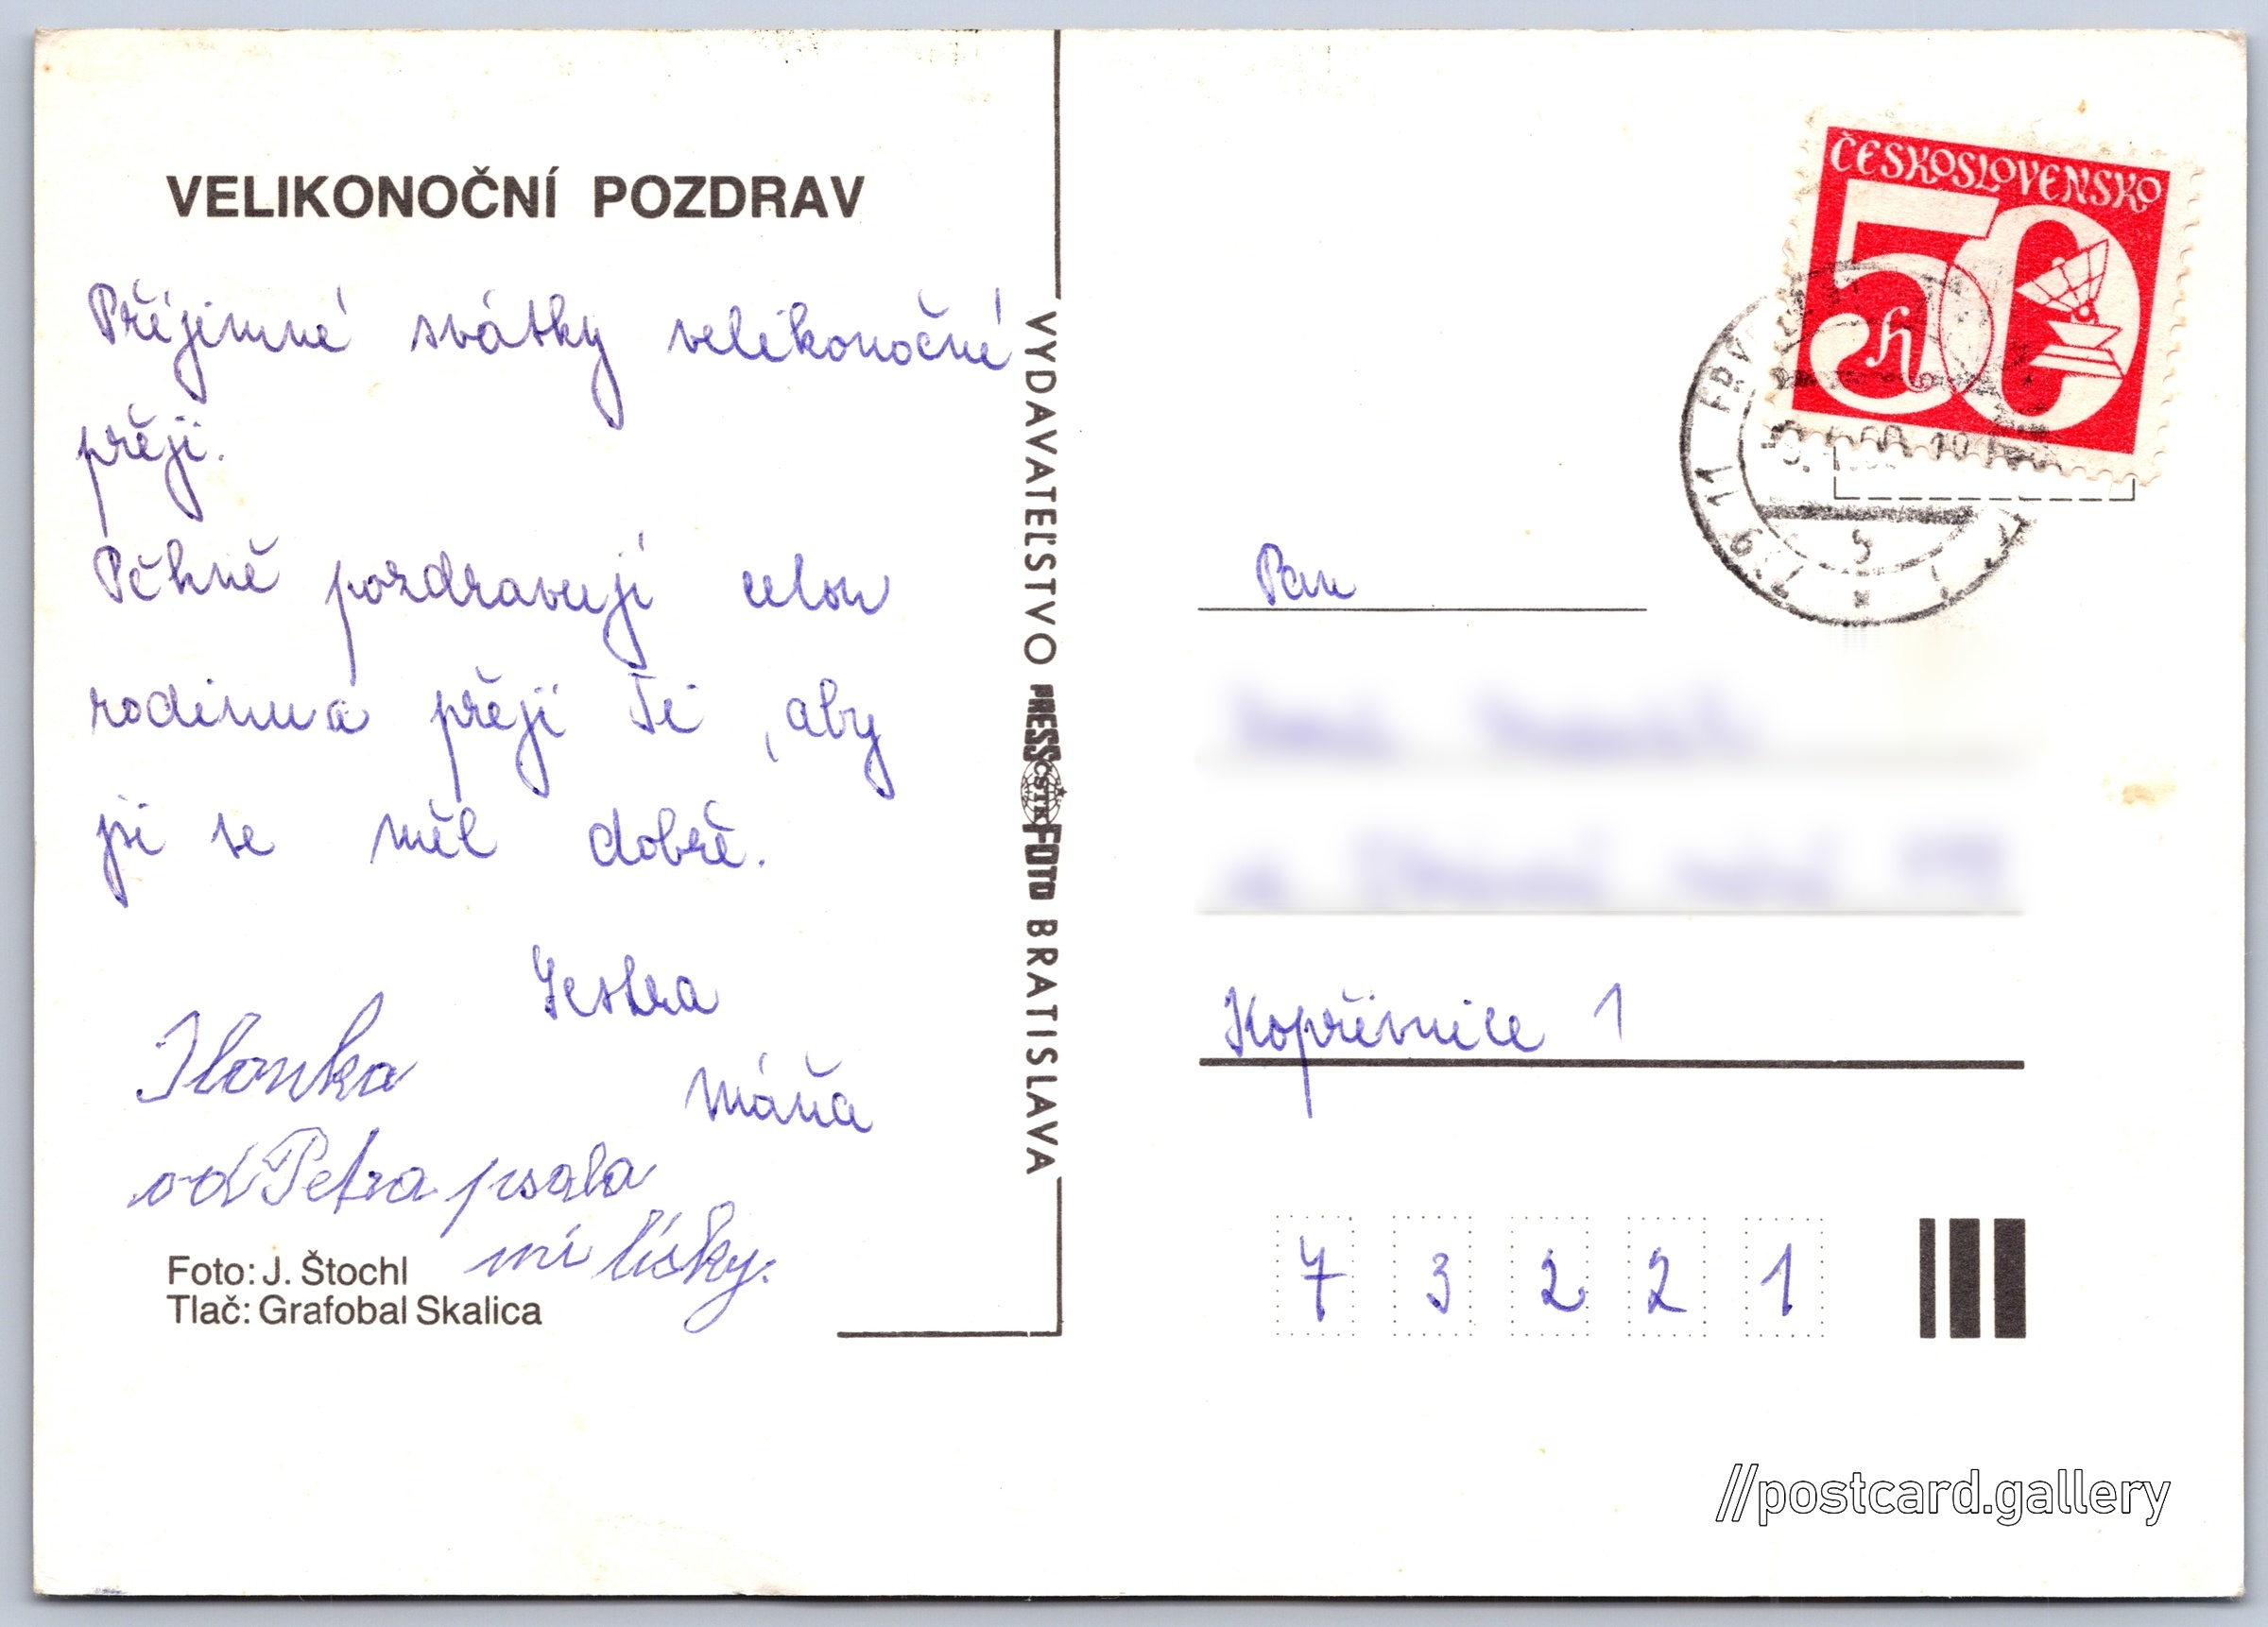 VELIKONOČNÍ POZDRAV
Příjemné svátky velikonoční
přeji.
Pěkně pozdravuji celou
rodinu a přeji Ti, aby
jsi se měl dobře.
Sestra
Máňa
Ilonka
od Petra psala
mi lístky.
Foto: J. Štochl
Tlač: Grafobal Skalica
VYDAVATEĽSTVO PRESSFOTO BRATISLAVA
ČSTK
ČESKOSLOVENSKO
50
h
739 11 FRÝ
Pan
Kopřivnice 1
7 3 2 2 1
//postcard.gallery